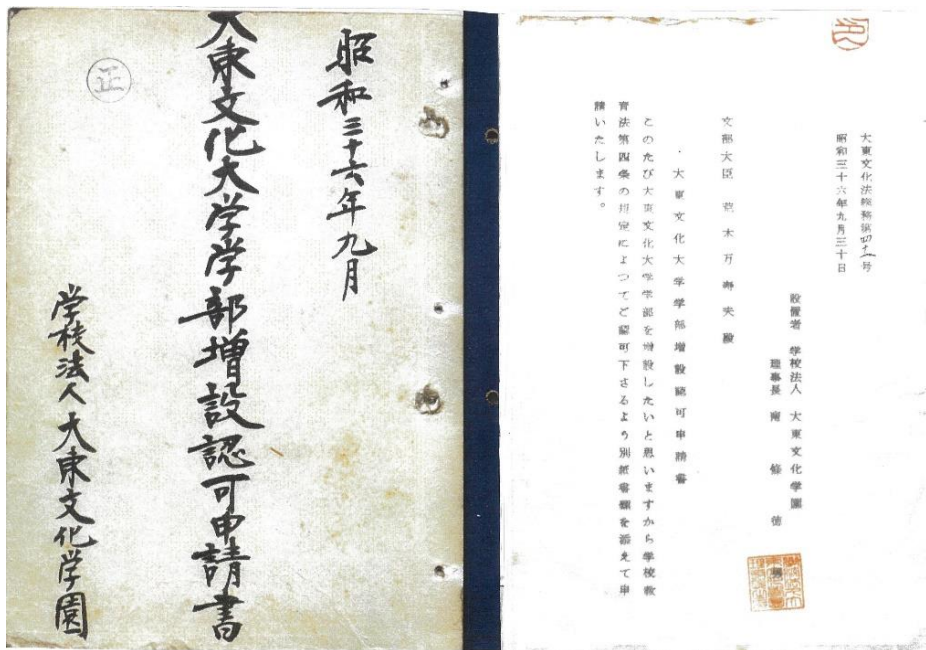 昭和三十六年九月
大東文化大学学部増設認可申請書
学校法人大東文化学園
正
大東文化法総務第四十一号
昭和三十六年九月三十日
設置者 学校法人 大東文化学園
理事長 南 條 徳 男
文部大臣 荒木万寿夫殿
・大東文化大学学部増設認可申請書
このたび大東文化大学学部を増設したいと思いますから学校教
育法第四条の規定によつてご認可下さるよう別紙書類を添えて申
請いたします。